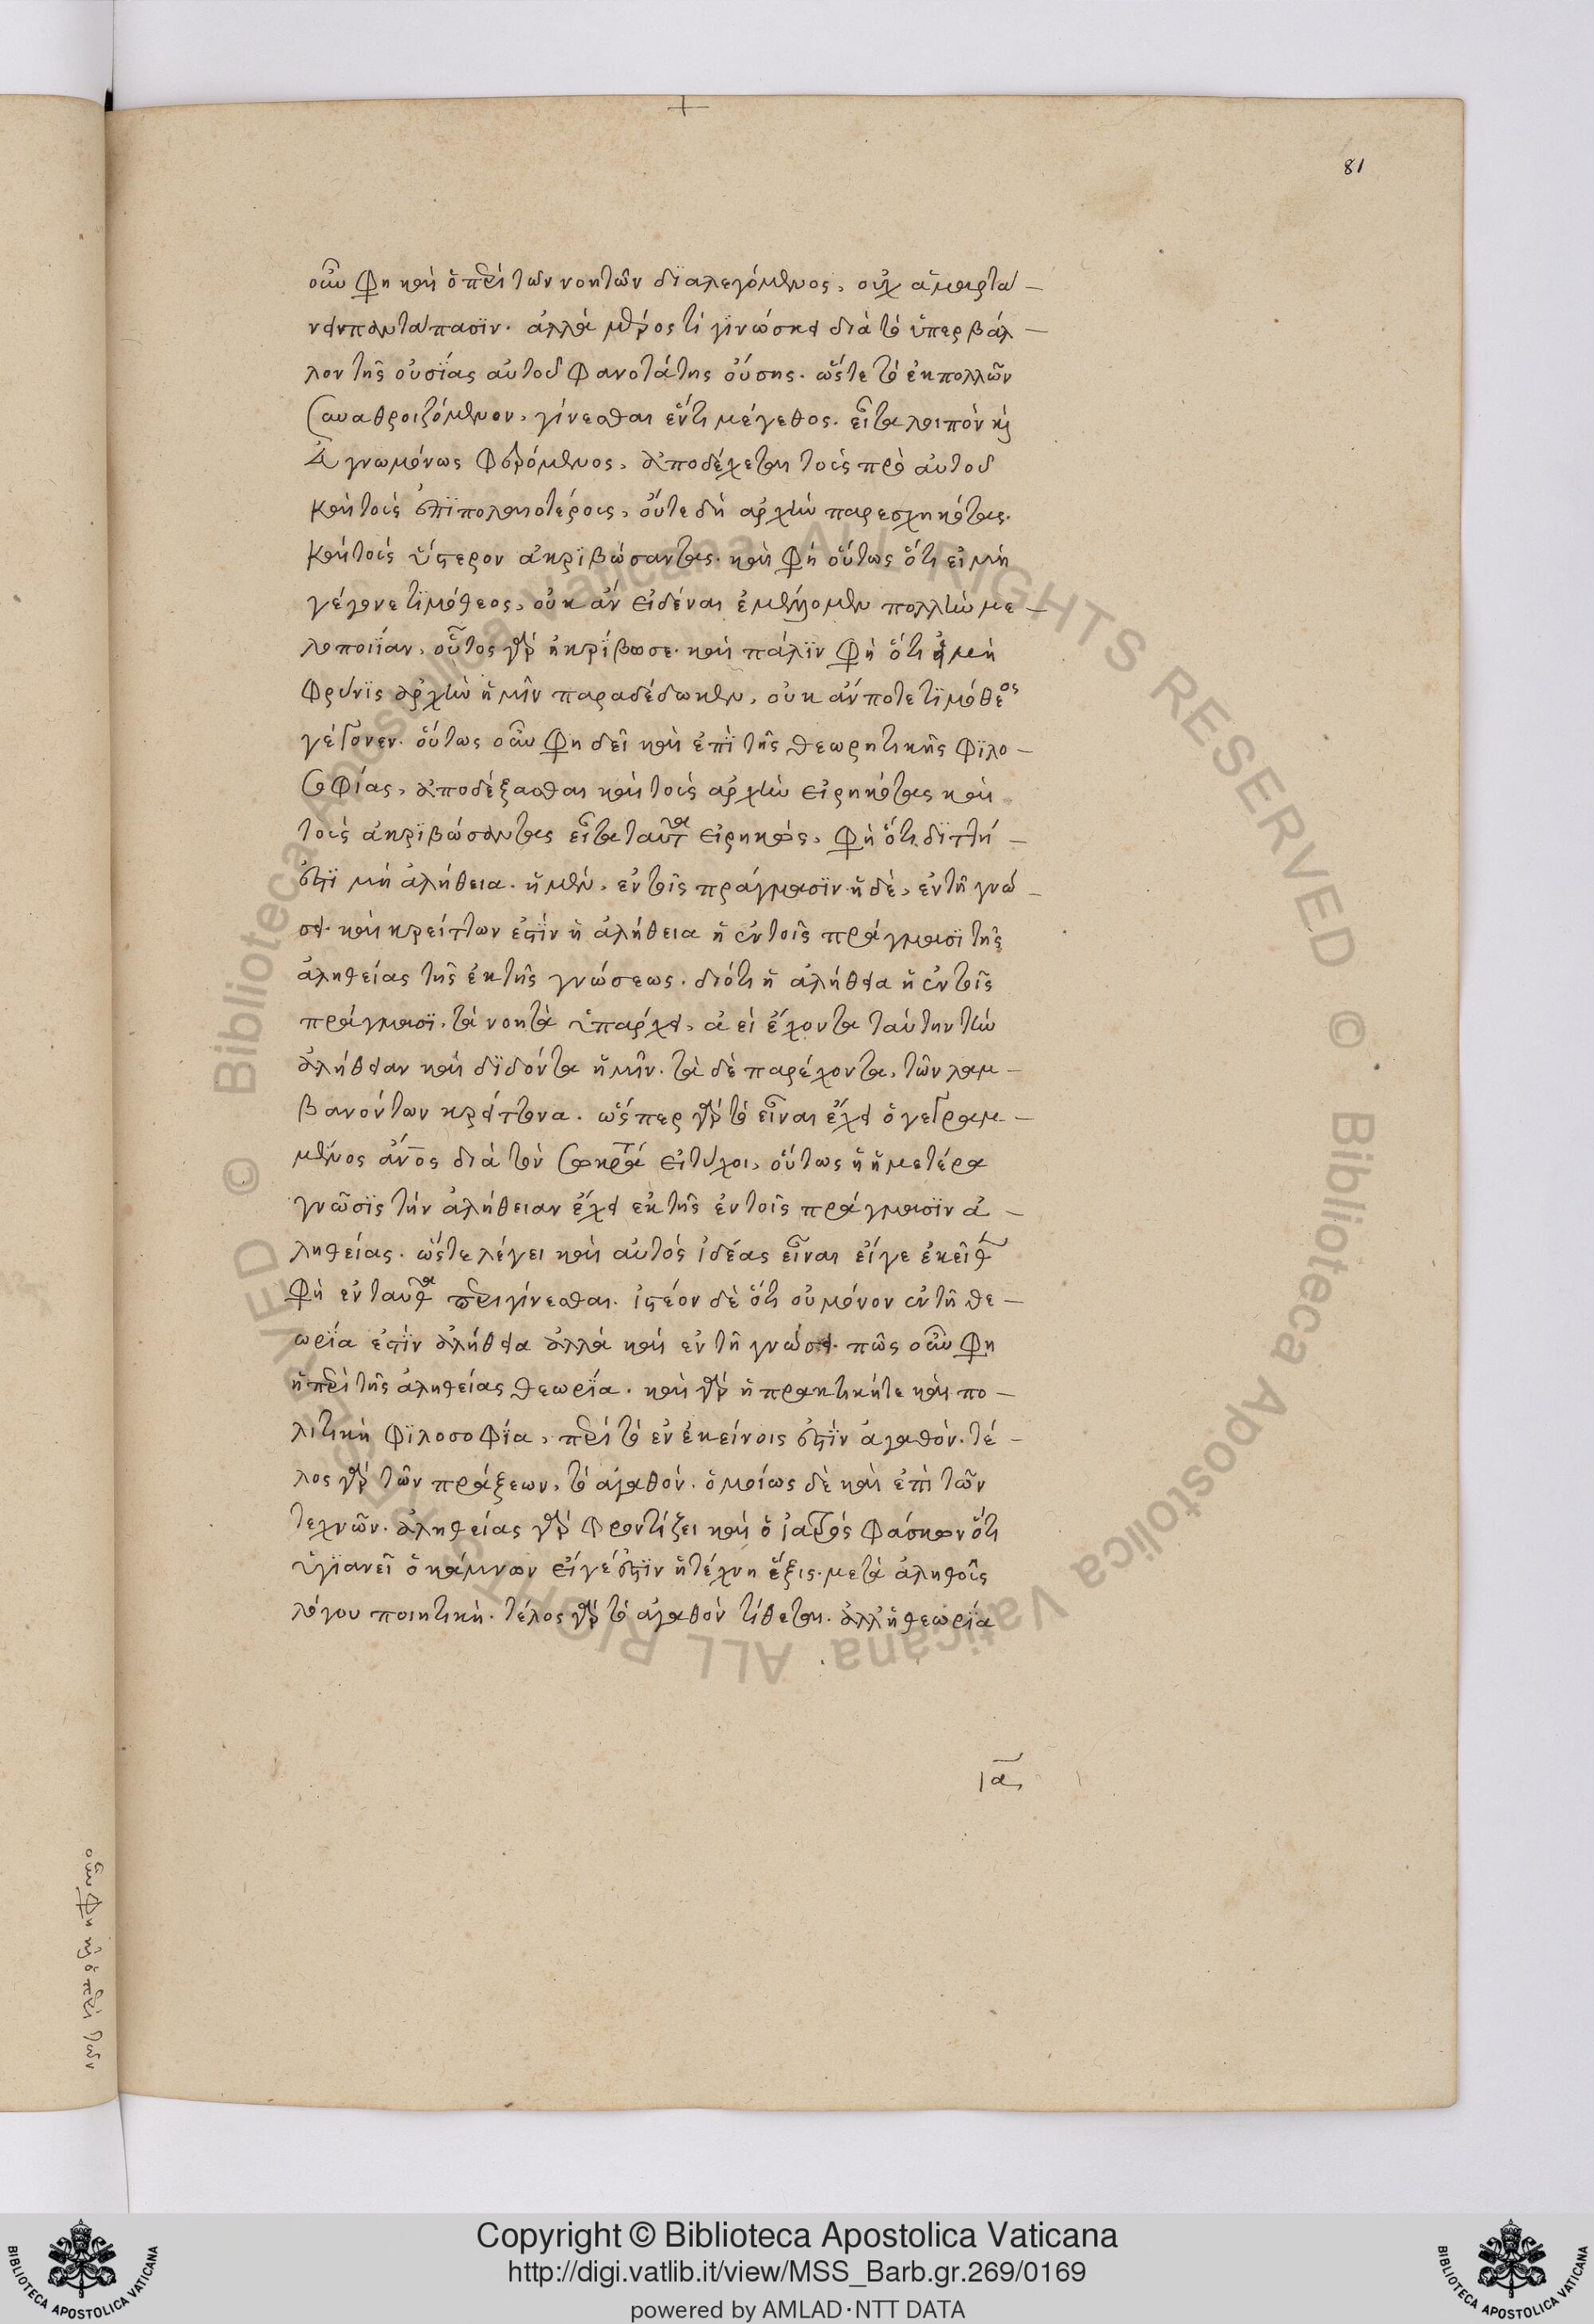 81
οὖν φη καὶ ὁ περὶ τῶν νοητῶν διαλεγόμενος, οὐχ ἁμαρτά–
νει παντάπασϊν. ἀλλὰ μέρος τί γϊνώσκει διὰ τὸ ὑπερβάλ–
λον τῆς οὐσίας αὐτοῦ φανοτάτης οὔσης. ὥστε τὸ ἐκ πολλῶν
συναθροιζόμενον, γίνεσθαι ἕν τι μέγεθος. εἶτα λοιπὸν καὶ
εὐγνωμόνως φερόμενος, ἀποδέχεται τοὺς πρὸ αὐτοῦ
καὶ τοὺς ἐπϊπολαιοτέρους, οὔτε δὴ ἀρχὴν παρεσχηκότας.
καὶ τοὺς ὕστερον ἀκρϊβώσαντας. καὶ φὴ οὕτως ὅτι εἰ μὴ
γέγονε τϊμόθεος, οὐκ ἂν εἰδέναι ἐμέλλομεν πολλὴν με–
λοποιΐαν, οὗτος γὰρ ἠκρΐβωσε. καὶ πάλϊν φὴ ὅτι εἰ μὴ
φρύνϊς ἀρχὴν ἡμῖν παραδέδωκεν, οὐκ ἄν ποτε τϊμόθεος
γέγονεν. οὕτως οὖν φη δεῖ καὶ ἐπῒ τῆς θεωρητικῆς φϊλο–
σοφίας, ἀποδέξασθαι καὶ τοὺς ἀρχὴν εἰρηκότας καὶ
τοὺς ἀκρϊβώσαντας εἶτα ταῦτα εἰρηκὼς, φὴ ὅτι διττή–
ἐστϊ μὴ ἀλήθεια. ἡ μὲν, ἐν τοῖς πράγμασϊν. ἡ δὲ, ἐν τῇ γνώ–
σει. καὶ κρείττων ἐστϊν ἡ ἀλήθεια ἡ ἐν τοῖς πράγμασϊ τῆς
ἀληθείας τῆς ἐκ τῆς γνώσεως. διότι ἡ ἀλήθεια ἡ ἐν τοῖς
πράγμασϊ, τὰ νοητὰ ὑπάρχει, ἀεὶ ἔχοντα ταύτην τὴν
ἀλήθειαν καὶ δϊδόντα ἡμῖν. τὰ δὲ παρέχοντα, τῶν λαμ–
βανόντων κρείττονα. ὥσπερ γὰρ τὸ εἶναι ἔχει ὁ γεγραμ–
μένος ἄνος διὰ τὸν σωκρά εἰ τύχοι, οὕτως ἡ ἡμετέρα
γνῶσϊς τὴν ἀλήθειαν ἔχει ἐκ τῆς ἐν τοῖς πράγμασϊν ἀ–
ληθείας. ὥστε λέγει καὶ αὐτὸς ἰδέας εἶναι εἴγε ἐκεῖθεν
φὴ ἐνταῦθα περιγίνεσθαι. ἰστέον δὲ ὅτι οὐ μόνον ἐν τῇ θε–
ωρΐα ἐστϊν ἀλήθεια ἀλλὰ καὶ ἐν τῇ γνώσει. πῶς οὖν φη
ἡ περὶ τῆς ἀληθείας θεωρΐα. καὶ γὰρ ἡ πρακτική τε καὶ πο–
λιτικὴ φϊλοσοφΐα, περὶ τὸ ἐν ἐκείνοις ἐστϊν ἀγαθόν. τέ–
λος γὰρ τῶν πράξεων, τὸ ἀγαθόν. ὁμοίως δὲ καὶ ἐπὶ τῶν
τεχνῶν. ἀληθείας γὰρ φροντίζει καὶ ὁ ἰατρός φάσκων ὅτι
ὑγϊανεῖ ὁ κάμνων εἴγέ ἐστϊν ἡ τέχνη ἕξις. μετὰ ἀληθοῦς
λόγου ποιητικὴ. τέλος γὰρ τὸ ἀγαθὸν τίθεται. ἀλλ' ἡ θεωρΐα
ια
οὖν φη καὶ ὁ περὶ τῶν
Copyright © Biblioteca Apostolica Vaticana
http://digi.vatlib.it/view/MSS_Barb.gr.269/0169
powered by AMLAD·NTT DATA
BIBLIOTECA APOSTOLICA VATICANA
BIBLIOTECA APOSTOLICA VATICANA
© Biblioteca Apostolica Vaticana ALL RIGHTS RESERVED
© Biblioteca Apostolica Vaticana ALL RIGHTS RESERVED